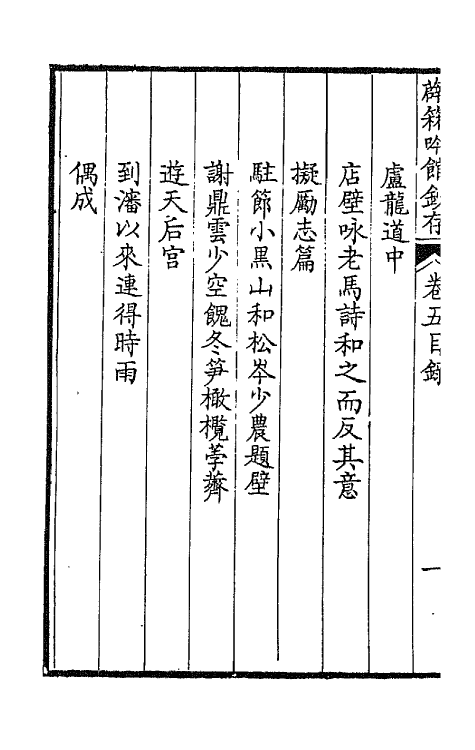 薜箖吟館鈔存 卷五目錄 一
盧龍道中
店壁咏老馬詩和之而反其意
擬勵志篇
駐節小黑山和松岑少農題壁
謝鼎雲少空餽冬笋橄欖荸薺
遊天后宮
到瀋以來連得時雨
偶成